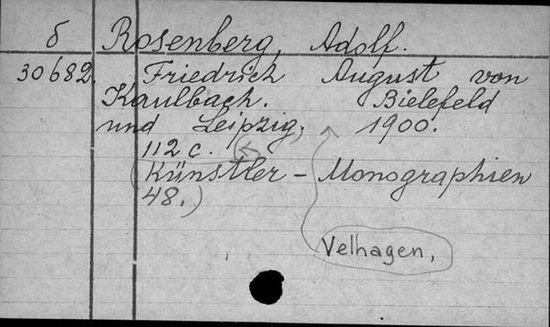 б Rosenberg, Adolf.
30682. Friedrich August von
Kaulbach. Bielefeld
und Leipzig, 1900.
112 c.
(Künstler - Monographien
48.)
Velhagen,